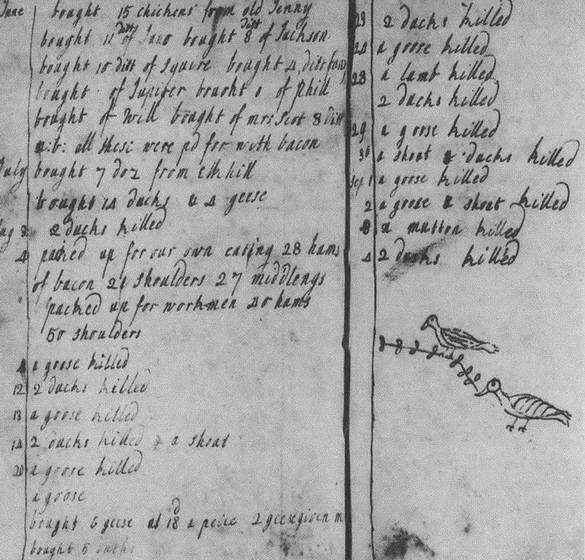 June bought 15 chickens from old Jenny
bought 11 ditt of Juno bought 8 ditt of Jackson
bought 10 ditt of Squire bought 4 ditt from
bought of Jupiter bought of Phill
bought of Will bought of mrs Scot 8 ditt
n:b: all these were pd for with bacon
July bought 7 doz from elkhill
bought 14 ducks & 4 geese
2 ducks killed
4 packed up for our own eating 28 hams
of bacon 21 shoulders 27 middlengs
packed up for workmen 40 hams
50 shoulders
a goose killed
12 2 ducks killed
13 a goose killed
14 2 ducks killed & a shoat
20 a goose killed
a goose
bought 6 geese at 18 d a peice 2 geese given
bought 5
23 2 ducks killed
24 a goose killed
28 a lamb killed
2 ducks killed
29 a goose killed
a shoat & ducks killed
sep 1 a goose killed
2 a goose & shoat killed
a mutton killed
4 2 ducks killed